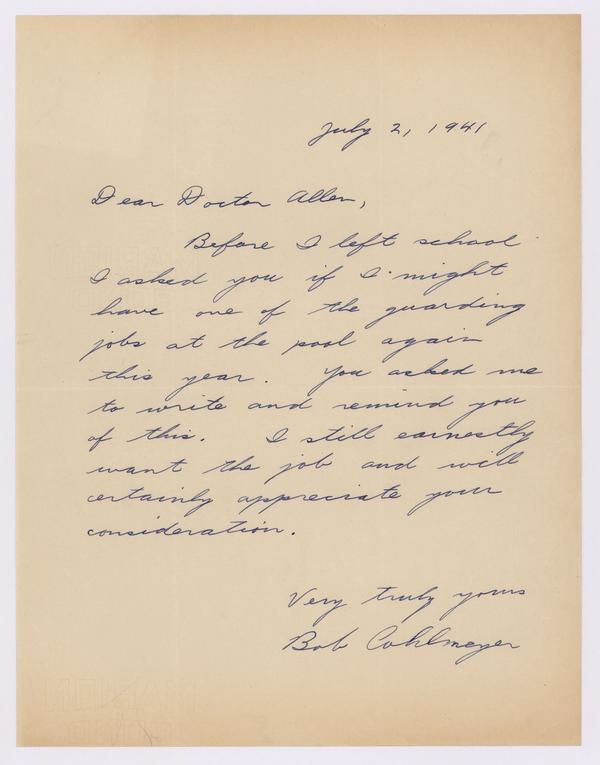 July 2, 1941
Dear Doctor Allen,
Before I left school
I asked you if I might
have one of the guarding
jobs at the pool again
this year. You asked me
to write and remind you
of this. I still earnestly
want the job and will
certainly appreciate your
consideration.
Very truly yours
Bob Cohlmeyer